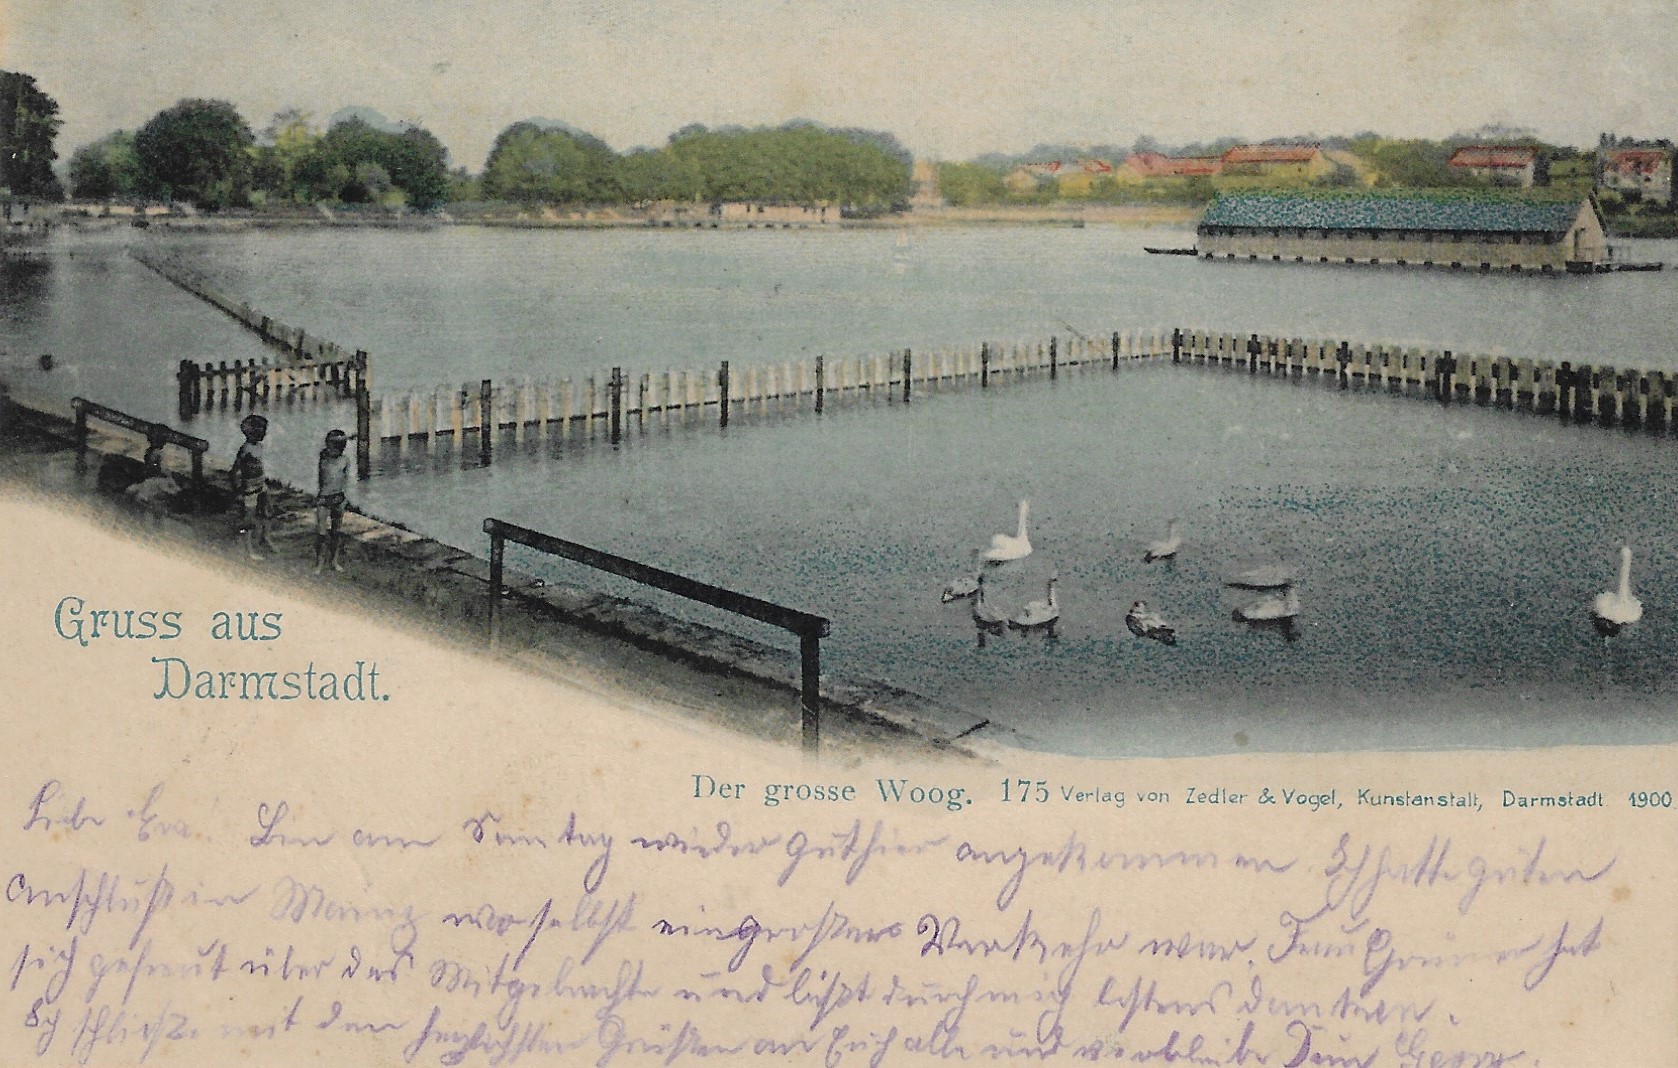 Gruss aus
Darmstadt.
Der grosse Woog. 175 Verlag von Zedler & Vogel, Kunstanstalt, Darmstadt 1900
Liebe Eva. Bin am Sonntag wieder gut hier angekommen Ich hatte guten
Anschluß in Mainz woselbst ein großer Verkehr war. Frau hat
sich gefreut über das Mitgebrachte und läßt durch mich bestens danken.
Ich schließe mit den herzlichsten Grüßen an Euch alle und verbleibe Dein Georg.